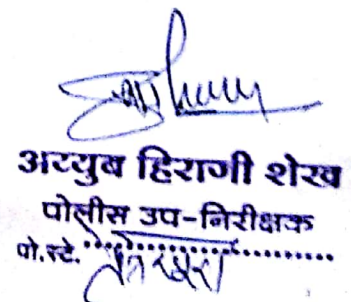 अय्युब हिरागी शेख
पोलीस उप-निरीक्षक
पो.स्टे.